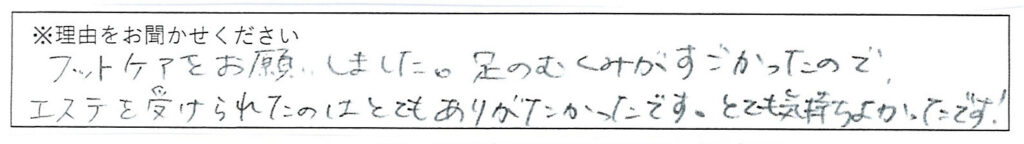 ※理由をお聞かせください
フットケアをお願いしました。足のむくみがすごかったので、
エステを受けられたのはとてもありがたかったです。とても気持ちよかったです!